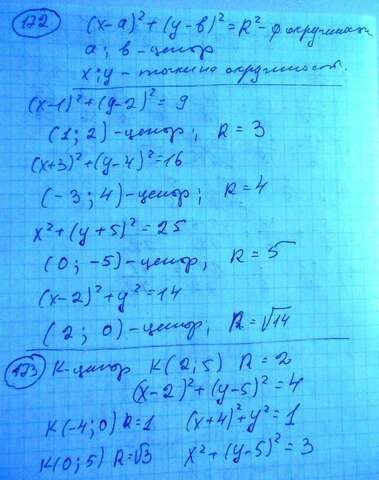 172 (x-a)²+(y-в)²=R²-ф окружности
a; в-центр
x; y-точки на окружности.
(x-1)²+(y-2)²=9
(1; 2)-центр; R=3
(x+3)²+(y-4)²=16
(-3; 4)-центр; R=4
x²+(y+5)²=25
(0; -5)-центр; R=5
(x-2)²+y²=14
(2; 0)-центр; R=√14
173 K-центр K(2;5) R=2
(x-2)²+(y-5)²=4
K(-4;0) R=1 (x+4)²+y²=1
K(0;5) R=√3 x²+(y-5)²=3